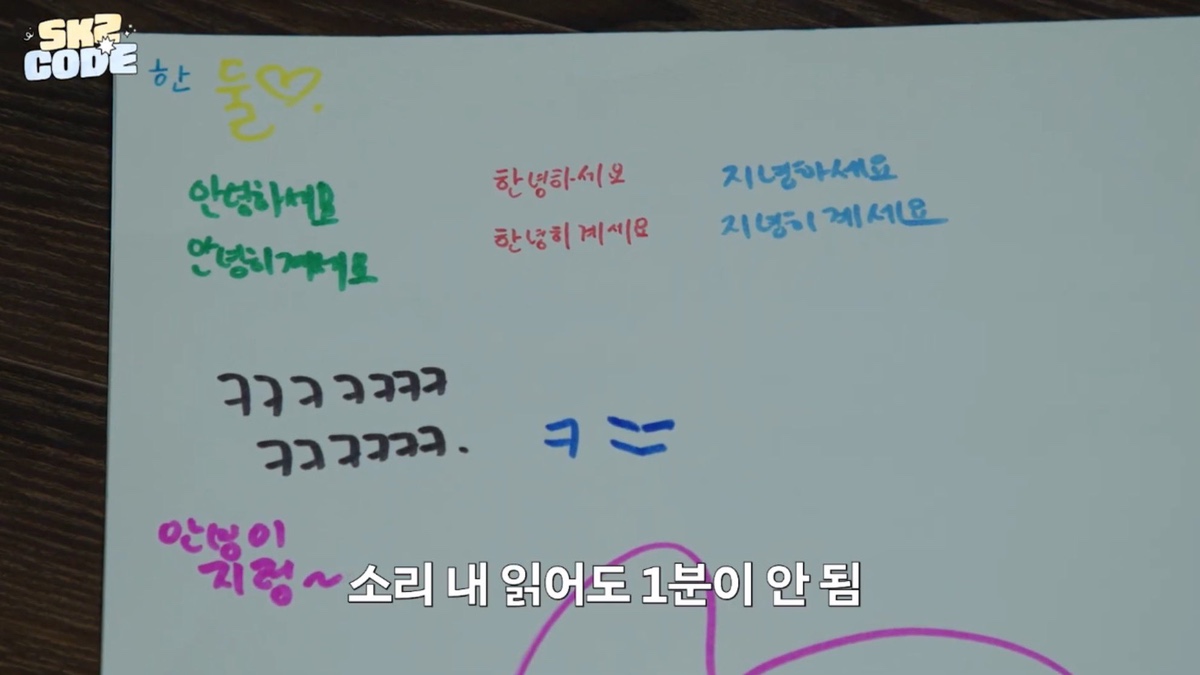 SKZ
CODE
한 둘♡.
안녕하세요 한녕하세요 지녕하세요
안녕히계세요 한녕히계세요 지녕히계세요
ㅋㅋㅋㅋㅋㅋㅋ
ㅋㅋㅋㅋㅋㅋ. ㅋ
안녕이
지렁~
소리 내 읽어도 1분이 안 됨